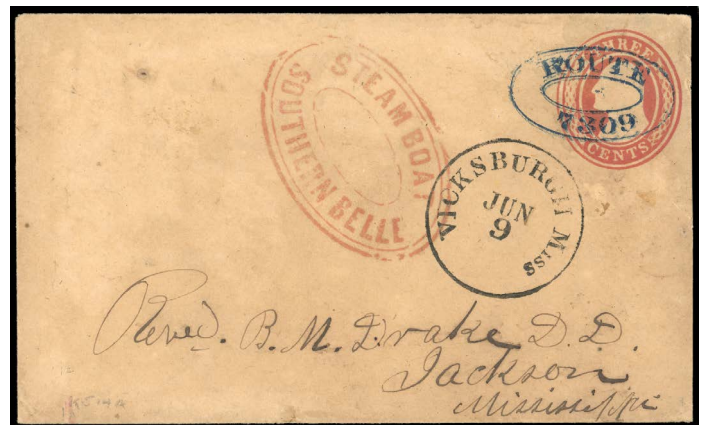 STEAM BOAT
SOUTHERN BELLE
THREE
CENTS
ROUTE
7309
VICKSBURGH MISS
JUN
9
Reved. B. M. Drake D. D.
Jackson
Mississippi